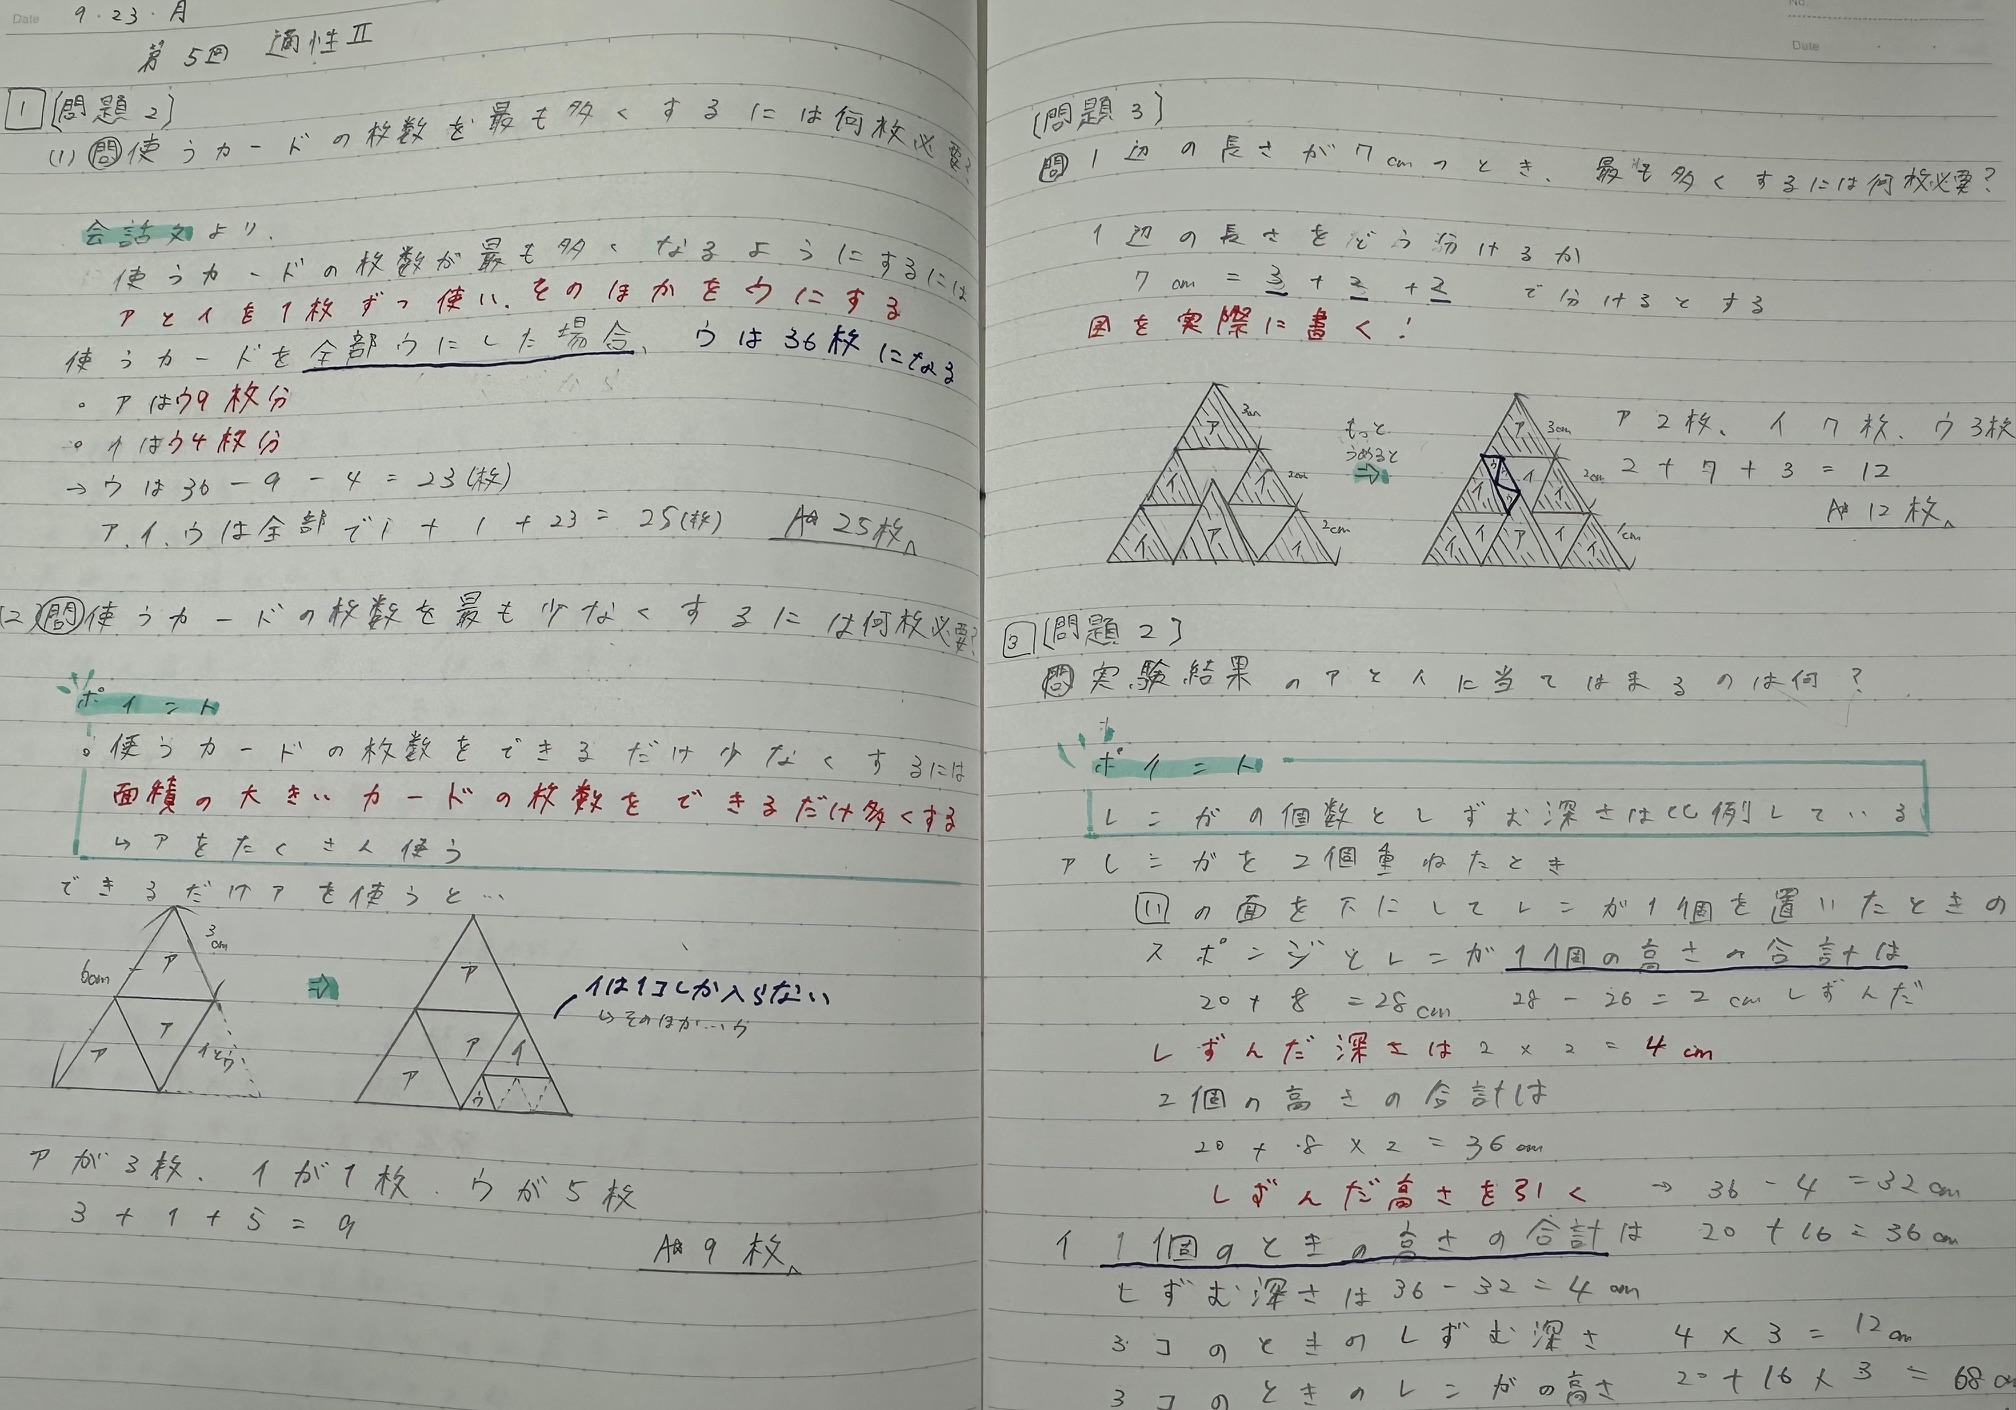 Date 9・23・月
第5回 適性Ⅱ
1 〔問題2〕
(1) 問 使うカードの枚数を最も多くするには何枚必要?
会話文より、
使うカードの枚数が最も多くなるようにするには
アとイを1枚ずつ使い、そのほかをウにする
使うカードを全部ウにした場合、ウは36枚になる
・アはウ9枚分
・イはウ4枚分
→ウは36-9-4=23(枚)
ア、イ、ウは全部で1+1+23=25(枚) A 25枚
(2) 問 使うカードの枚数を最も少なくするには何枚必要?
ポイント
・使うカードの枚数をできるだけ少なくするには
面積の大きいカードの枚数をできるだけ多くする
↳アをたくさん使う
できるだけアを使うと…
6cm 3cm ア ア ア イとウ
⇒
ア ア ア イ ウ
イは1コしか入らない
↳そのほか…ウ
アが3枚、イが1枚、ウが5枚
3+1+5=9
A 9枚
No.
Date
〔問題3〕
問 1辺の長さが7cmのとき、最も多くするには何枚必要?
1辺の長さをどう分けるか
7cm=3+2+2 で分けるとする
図を実際に書く!
ア 3cm イ イ 2cm イ ア イ 2cm
もっと
うめると
⇒
ア 3cm ウ ウ ウ イ イ 2cm イ イ ア イ イ 2cm
ア2枚、イ7枚、ウ3枚
2+7+3=12
A 12枚
3 〔問題2〕
問 実験結果のアとイに当てはまるのは何?
ポイント
レンガの個数としずむ深さは比例している
ア レンガを2個重ねたとき
(い)の面を下にしてレンガ1個を置いたときの
スポンジとレンガ1個の高さの合計は
20+8=28cm 28-26=2cmしずんだ
しずんだ深さは2×2=4cm
2個の高さの合計は
20+8×2=36cm
しずんだ高さを引く →36-4=32cm
イ 1個のときの高さの合計は 20+16=36cm
しずむ深さは36-32=4cm
3コのときのしずむ深さ 4×3=12cm
3コのときのレンガの高さ 20+16×3=68cm